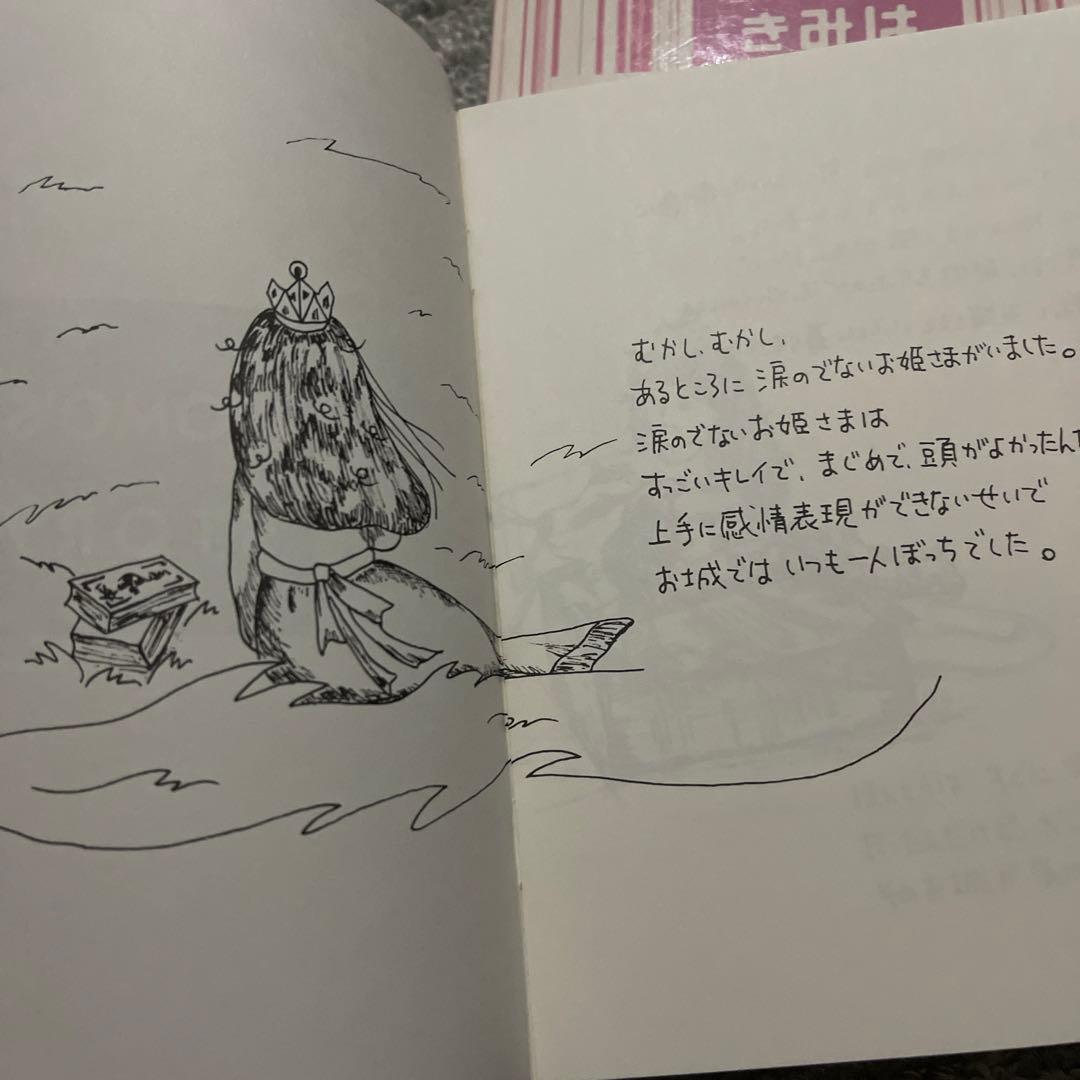 おやき
むかし、むかし、
あるところに 涙のでないお姫さまがいました。
涙のでないお姫さまは
すっごいキレイで、まじめで、頭がよかったん
上手に感情表現ができないせいで
お城では いつも一人ぼっちでした。